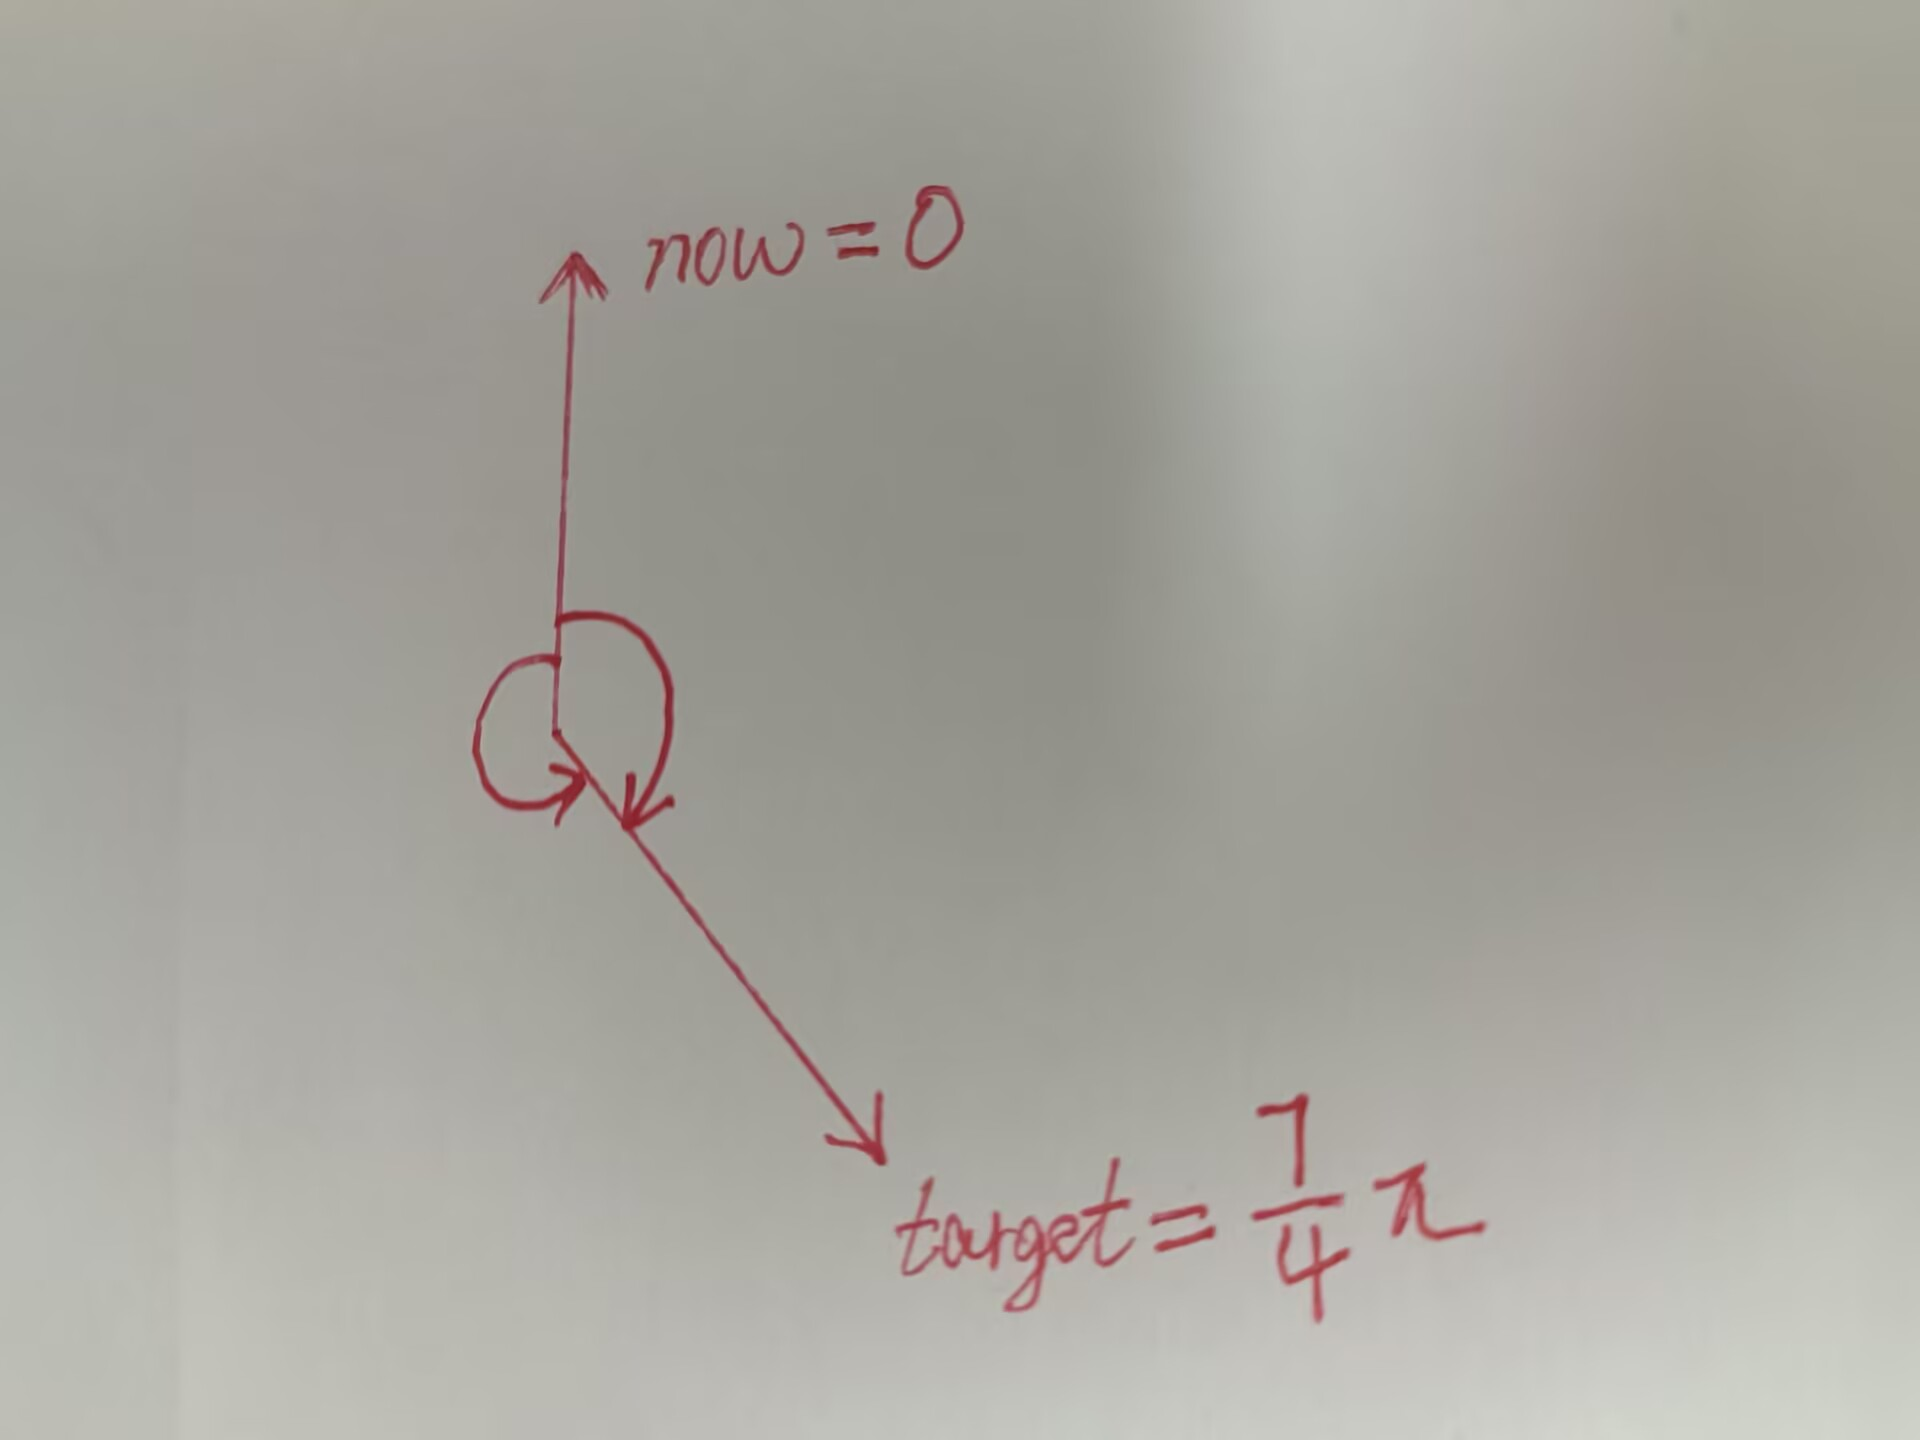 now = 0
target = 7/4 π